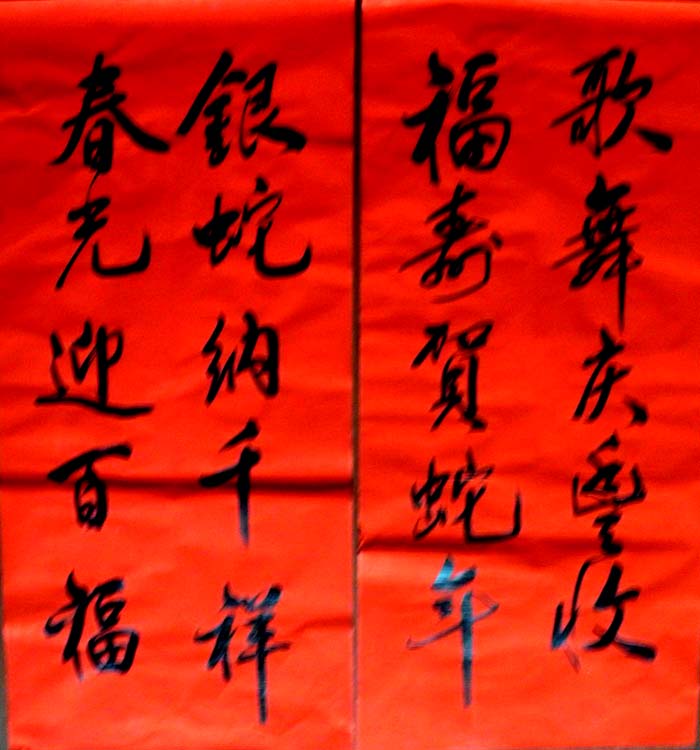 歌舞庆豐收
福寿賀蛇年
銀蛇纳千祥
春光迎百福